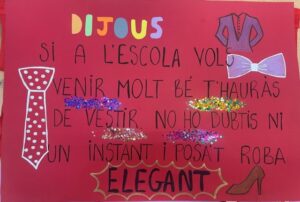 DIJOUS
SI A L'ESCOLA VOLS
VENIR MOLT BÉ T'HAURÀS
DE VESTIR NO HO DUBTIS NI
UN INSTANT I POSA'T ROBA
ELEGANT